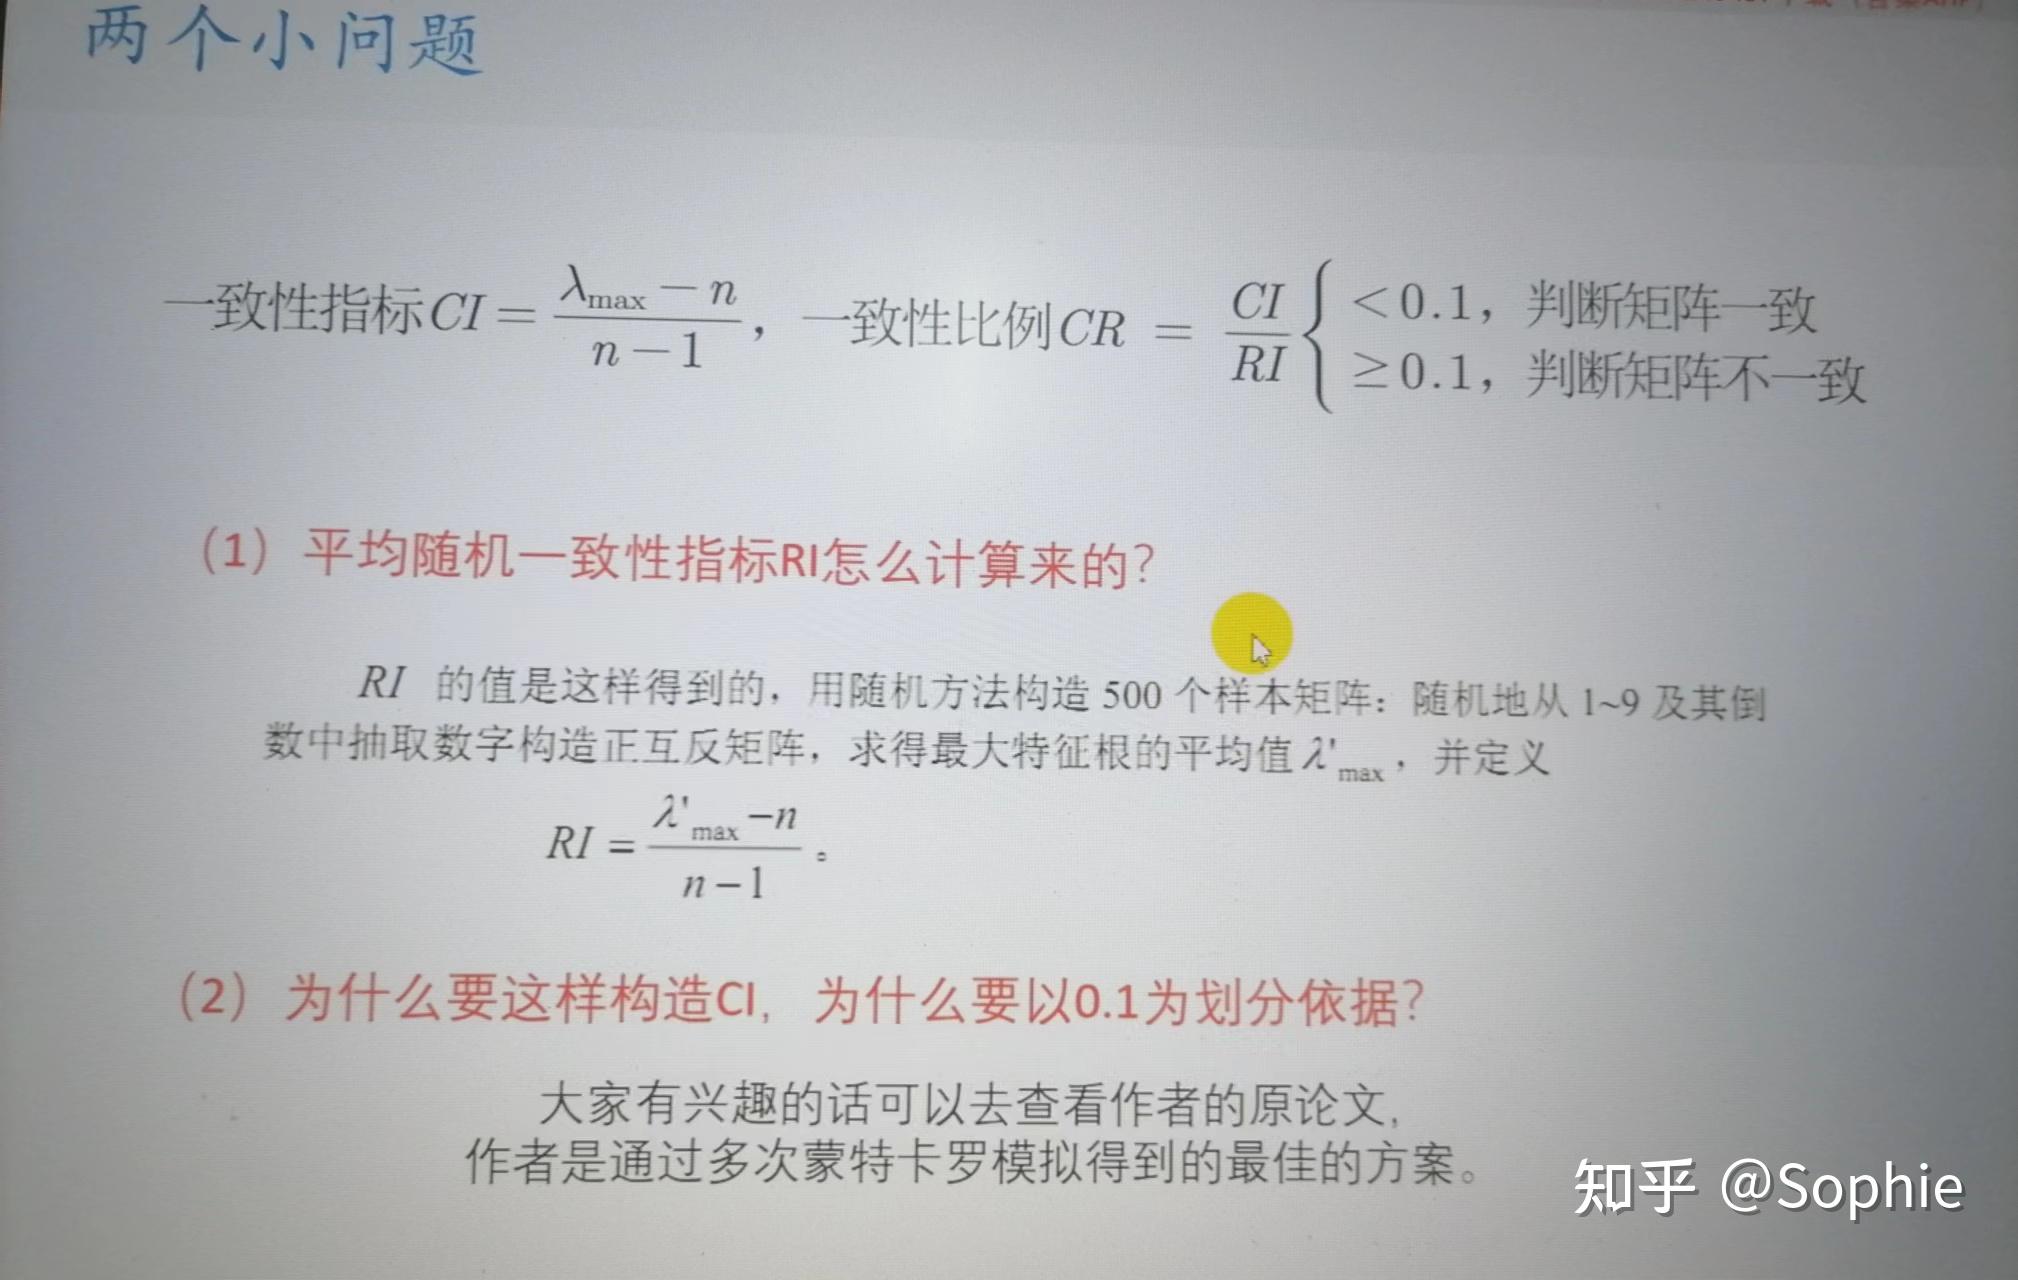 两个小问题
一致性指标CI = \frac{λ_{max} - n}{n - 1}，一致性比例CR = \frac{CI}{RI} { <0.1，判断矩阵一致
≥0.1，判断矩阵不一致
（1）平均随机一致性指标RI怎么计算来的？
RI 的值是这样得到的，用随机方法构造 500 个样本矩阵：随机地从 1~9 及其倒
数中抽取数字构造正互反矩阵，求得最大特征根的平均值 λ'_{max}，并定义
RI = \frac{λ'_{max} - n}{n - 1}。
（2）为什么要这样构造CI，为什么要以0.1为划分依据？
大家有兴趣的话可以去查看作者的原论文，
作者是通过多次蒙特卡罗模拟得到的最佳的方案。
知乎 @Sophie